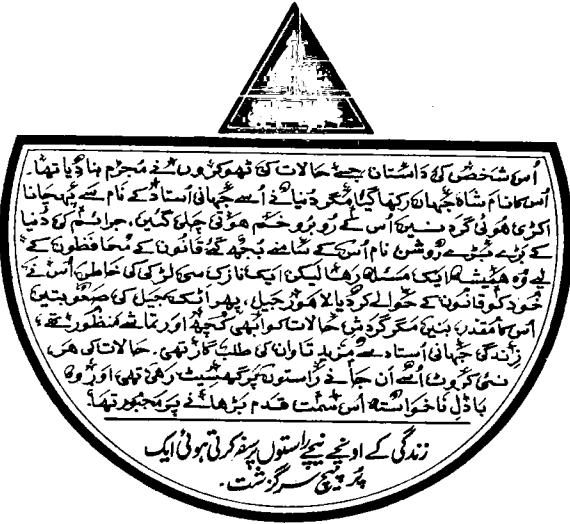 اُس شخص کی داستان جسے حالات کی ٹھوکروں نے مُجرم بنا دیا تھا۔
اُس کا نام شاہ جہان رکھا گیا مگر دُنیا نے اُسے جہانی اُستاد کے نام سے پہچانا
اکڑی ہوئی گردنیں اُس کے رُوبرو خم ہوتی چلی گئیں، جرائم کی دُنیا
کے بڑے بڑے روشن نام اُس کے سامنے بُجھ گئے قانون کے محافظوں کے
لیے وُہ ہمیشہ ایک مسئلہ رہا لیکن ایک نازک سی لڑکی کی خاطر اُس نے
خُود کو قانون کے حوالے کر دیا لاہور جیل، پھر اٹک جیل کی صعوبتیں
اس کا مُقدر بنیں مگر گردشِ حالات کو ابھی کُچھ اور تماشے منظور تھے،
زندگی جہانی اُستاد سے مزید تاوان کی طلب گار تھی۔ حالات کی ہر
نئی کروٹ اُسے اَن جانے راستوں پر گھسیٹ رہی تھی اور وہ
بادِلِ ناخواستہ اُس سمت قدم بڑھانے پر مجبور تھا۔
زندگی کے اونچے نیچے راستوں پر سفر کرتی ہوئی ایک
پُر پیچ سرگزشت۔